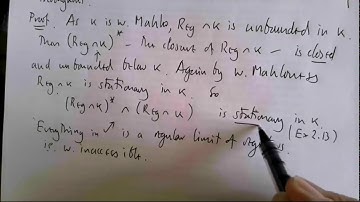 Proof. As κ is w. Mahlo, Reg ∩ κ is unbounded in κ.
Then (Reg ∩ κ)* – the closure of Reg ∩ κ – is closed
and unbounded below κ. Again by w. Mahloness
Reg ∩ κ is stationary in κ. So
(Reg ∩ κ)* ∩ (Reg ∩ κ) is stationary in κ
(Ex 2.13)
Everything in is a regular limit of
i.e. w. inaccessible.